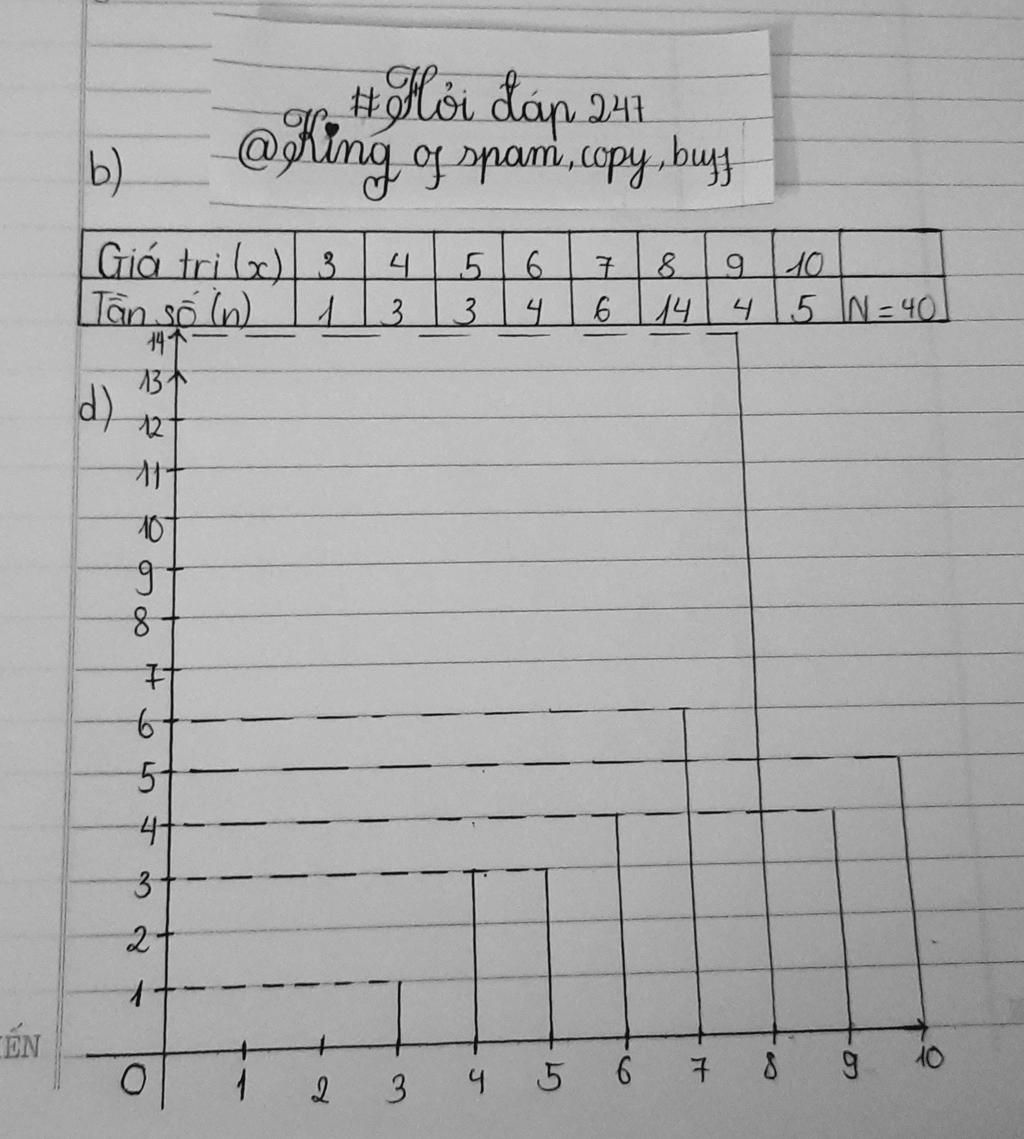 #Hỏi đáp 247
@King of spam, copy, buff
b)
Giá trị (x) 3 4 5 6 7 8 9 10
Tần số (n) 1 3 3 4 6 14 4 5 N = 40
14
13
d)
12
11
10
9
8
7
6
5
4
3
2
1
ẾN
O 1 2 3 4 5 6 7 8 9 10